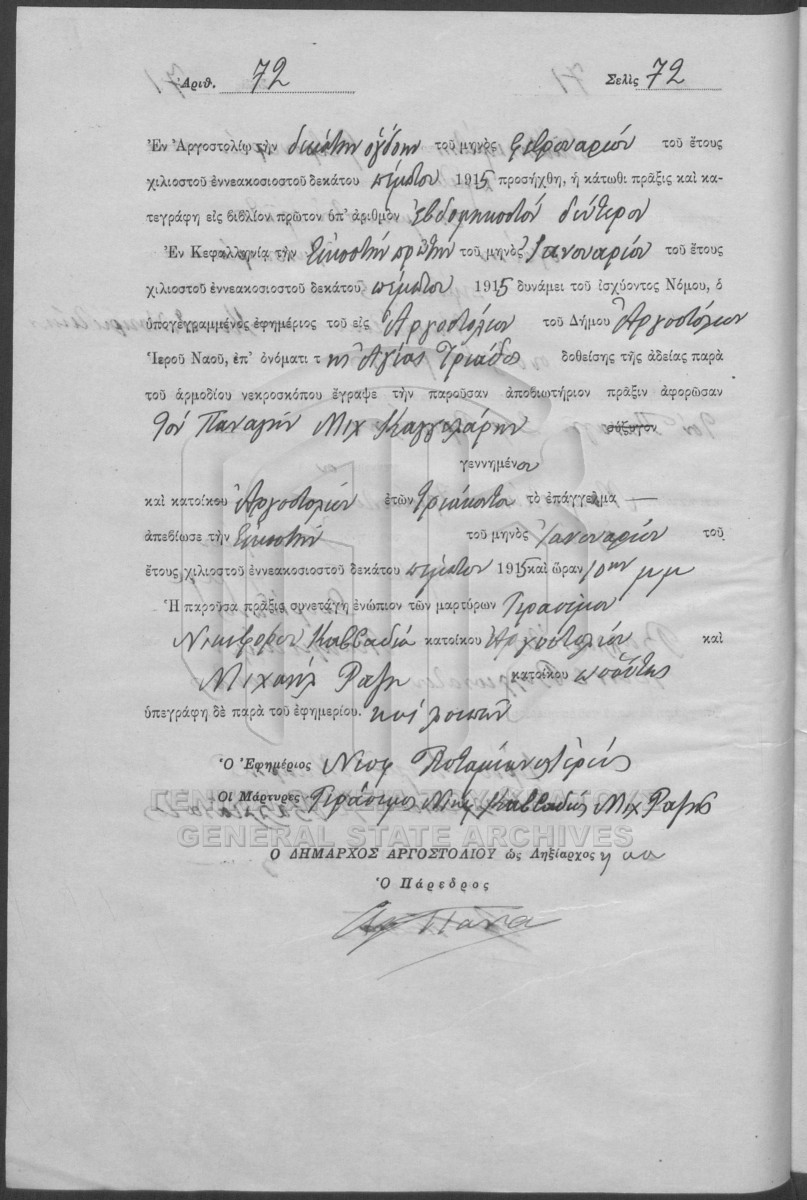 Ἀριθ. 72 Σελὶς 72
Ἐν Ἀργοστολίῳ τὴν δεκάτην ὀγδόην τοῦ μηνὸς Φεβρουαρίου τοῦ ἔτους
χιλιοστοῦ ἐννεακοσιοστοῦ δεκάτου πέμπτου 1915 προσήχθη, ἡ κάτωθι πρᾶξις καὶ κα-
τεγράφη εἰς βιβλίον πρῶτον ὑπ' ἀριθμὸν ἑβδομηκοστὸν δεύτερον
Ἐν Κεφαλληνίᾳ τὴν Εἰκοστὴν πρώτην τοῦ μηνὸς Ἰανουαρίου τοῦ ἔτους
χιλιοστοῦ ἐννεακοσιοστοῦ δεκάτου πέμπτου 1915 δυνάμει τοῦ ἰσχύοντος Νόμου, ὁ
ὑπογεγραμμένος ἐφημέριος τοῦ εἰς Ἀργοστόλιον τοῦ Δήμου Ἀργοστολίου
Ἱεροῦ Ναοῦ, ἐπ' ὀνόματι τῆς Ἁγίας Τριάδος δοθείσης τῆς ἀδείας παρὰ
τοῦ ἁρμοδίου νεκροσκόπου ἔγραψε τὴν παροῦσαν ἀποβιωτήριον πρᾶξιν ἀφορῶσαν
τὸν Παναγῆν Μιχ Καγγελάρην σύζυγον
γεννημένον
καὶ κατοίκου Ἀργοστολίου ἐτῶν τριάκοντα τὸ ἐπάγγελμα —
ἀπεβίωσε τὴν Εἰκοστὴν τοῦ μηνὸς Ἰανουαρίου τοῦ
ἔτους χιλιοστοῦ ἐννεακοσιοστοῦ δεκάτου πέμπτου 1915 καὶ ὥραν 10ην μμ
Ἡ παροῦσα πρᾶξις συνετάγη ἐνώπιον τῶν μαρτύρων Γερασίμου
Νικηφόρου Καββαδία κατοίκου Ἀργοστολίου καὶ
Μιχαὴλ Ραζῆ κατοίκου ὡσαύτως
ὑπεγράφη δὲ παρὰ τοῦ ἐφημερίου. καὶ λοιπῶν
Ὁ Ἐφημέριος Νεοφ Ποταμιάνος Ἱερεύς
Οἱ Μάρτυρες Γεράσιμος Νικ Καββαδίας Μιχ Ραζῆς
ΓΕΝΙΚΑ ΑΡΧΕΙΑ ΤΟΥ ΚΡΑΤΟΥΣ
GENERAL STATE ARCHIVES
Ο ΔΗΜΑΡΧΟΣ ΑΡΓΟΣΤΟΛΙΟΥ ὡς Ληξίαρχος
Ὁ Πάρεδρος